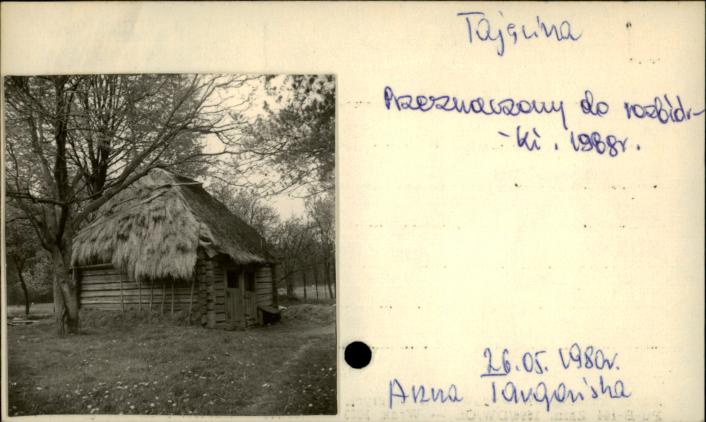 Tajęcina
Przeznaczony do rozbiór-
-ki. 1988r.
26.05.1980r.
Anna